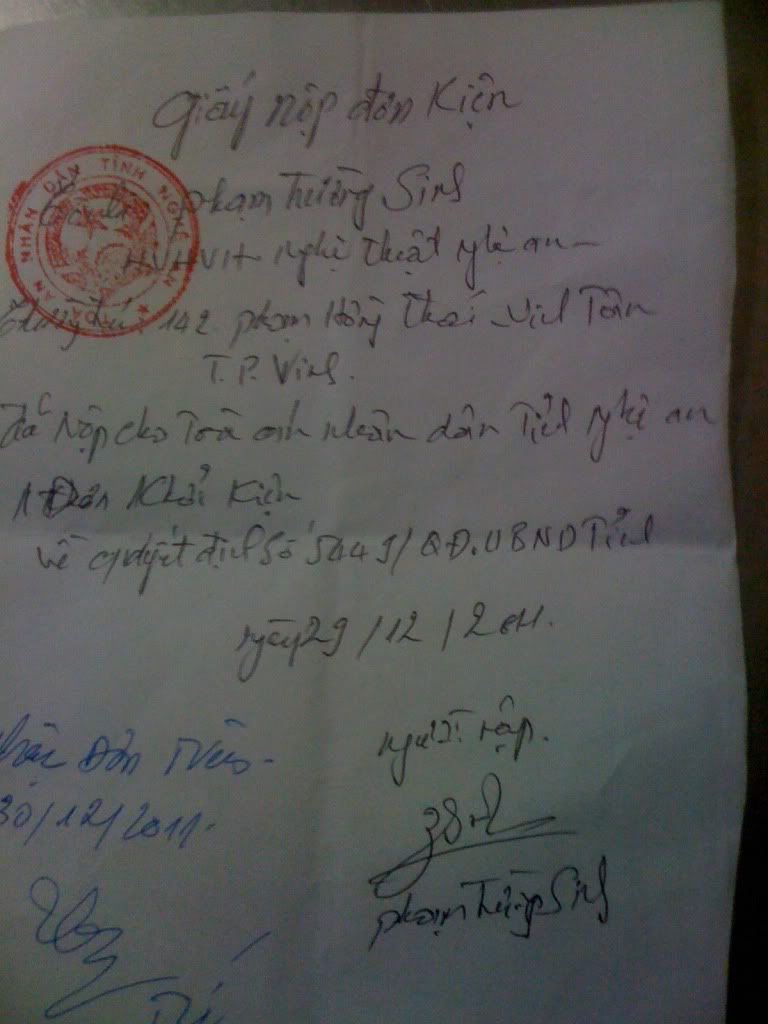 Giấy nộp đơn kiện
TÒA ÁN NHÂN DÂN TỈNH NGHỆ AN
Phạm Trường Sinh
HVHVH nghệ thuật nghệ an -
Thường trú 142 phạm Hồng Thái - Vinh Tân
T.P. Vinh.
Đã Nộp cho Toà án nhân dân Tỉnh nghệ an
1 Đơn Khởi Kiện
Về quyết định số 5449/QĐ.UBND Tỉnh
ngày 29/12/2011.
người nộp.
Đơn
30/12/2011.
phạm Trường Sinh